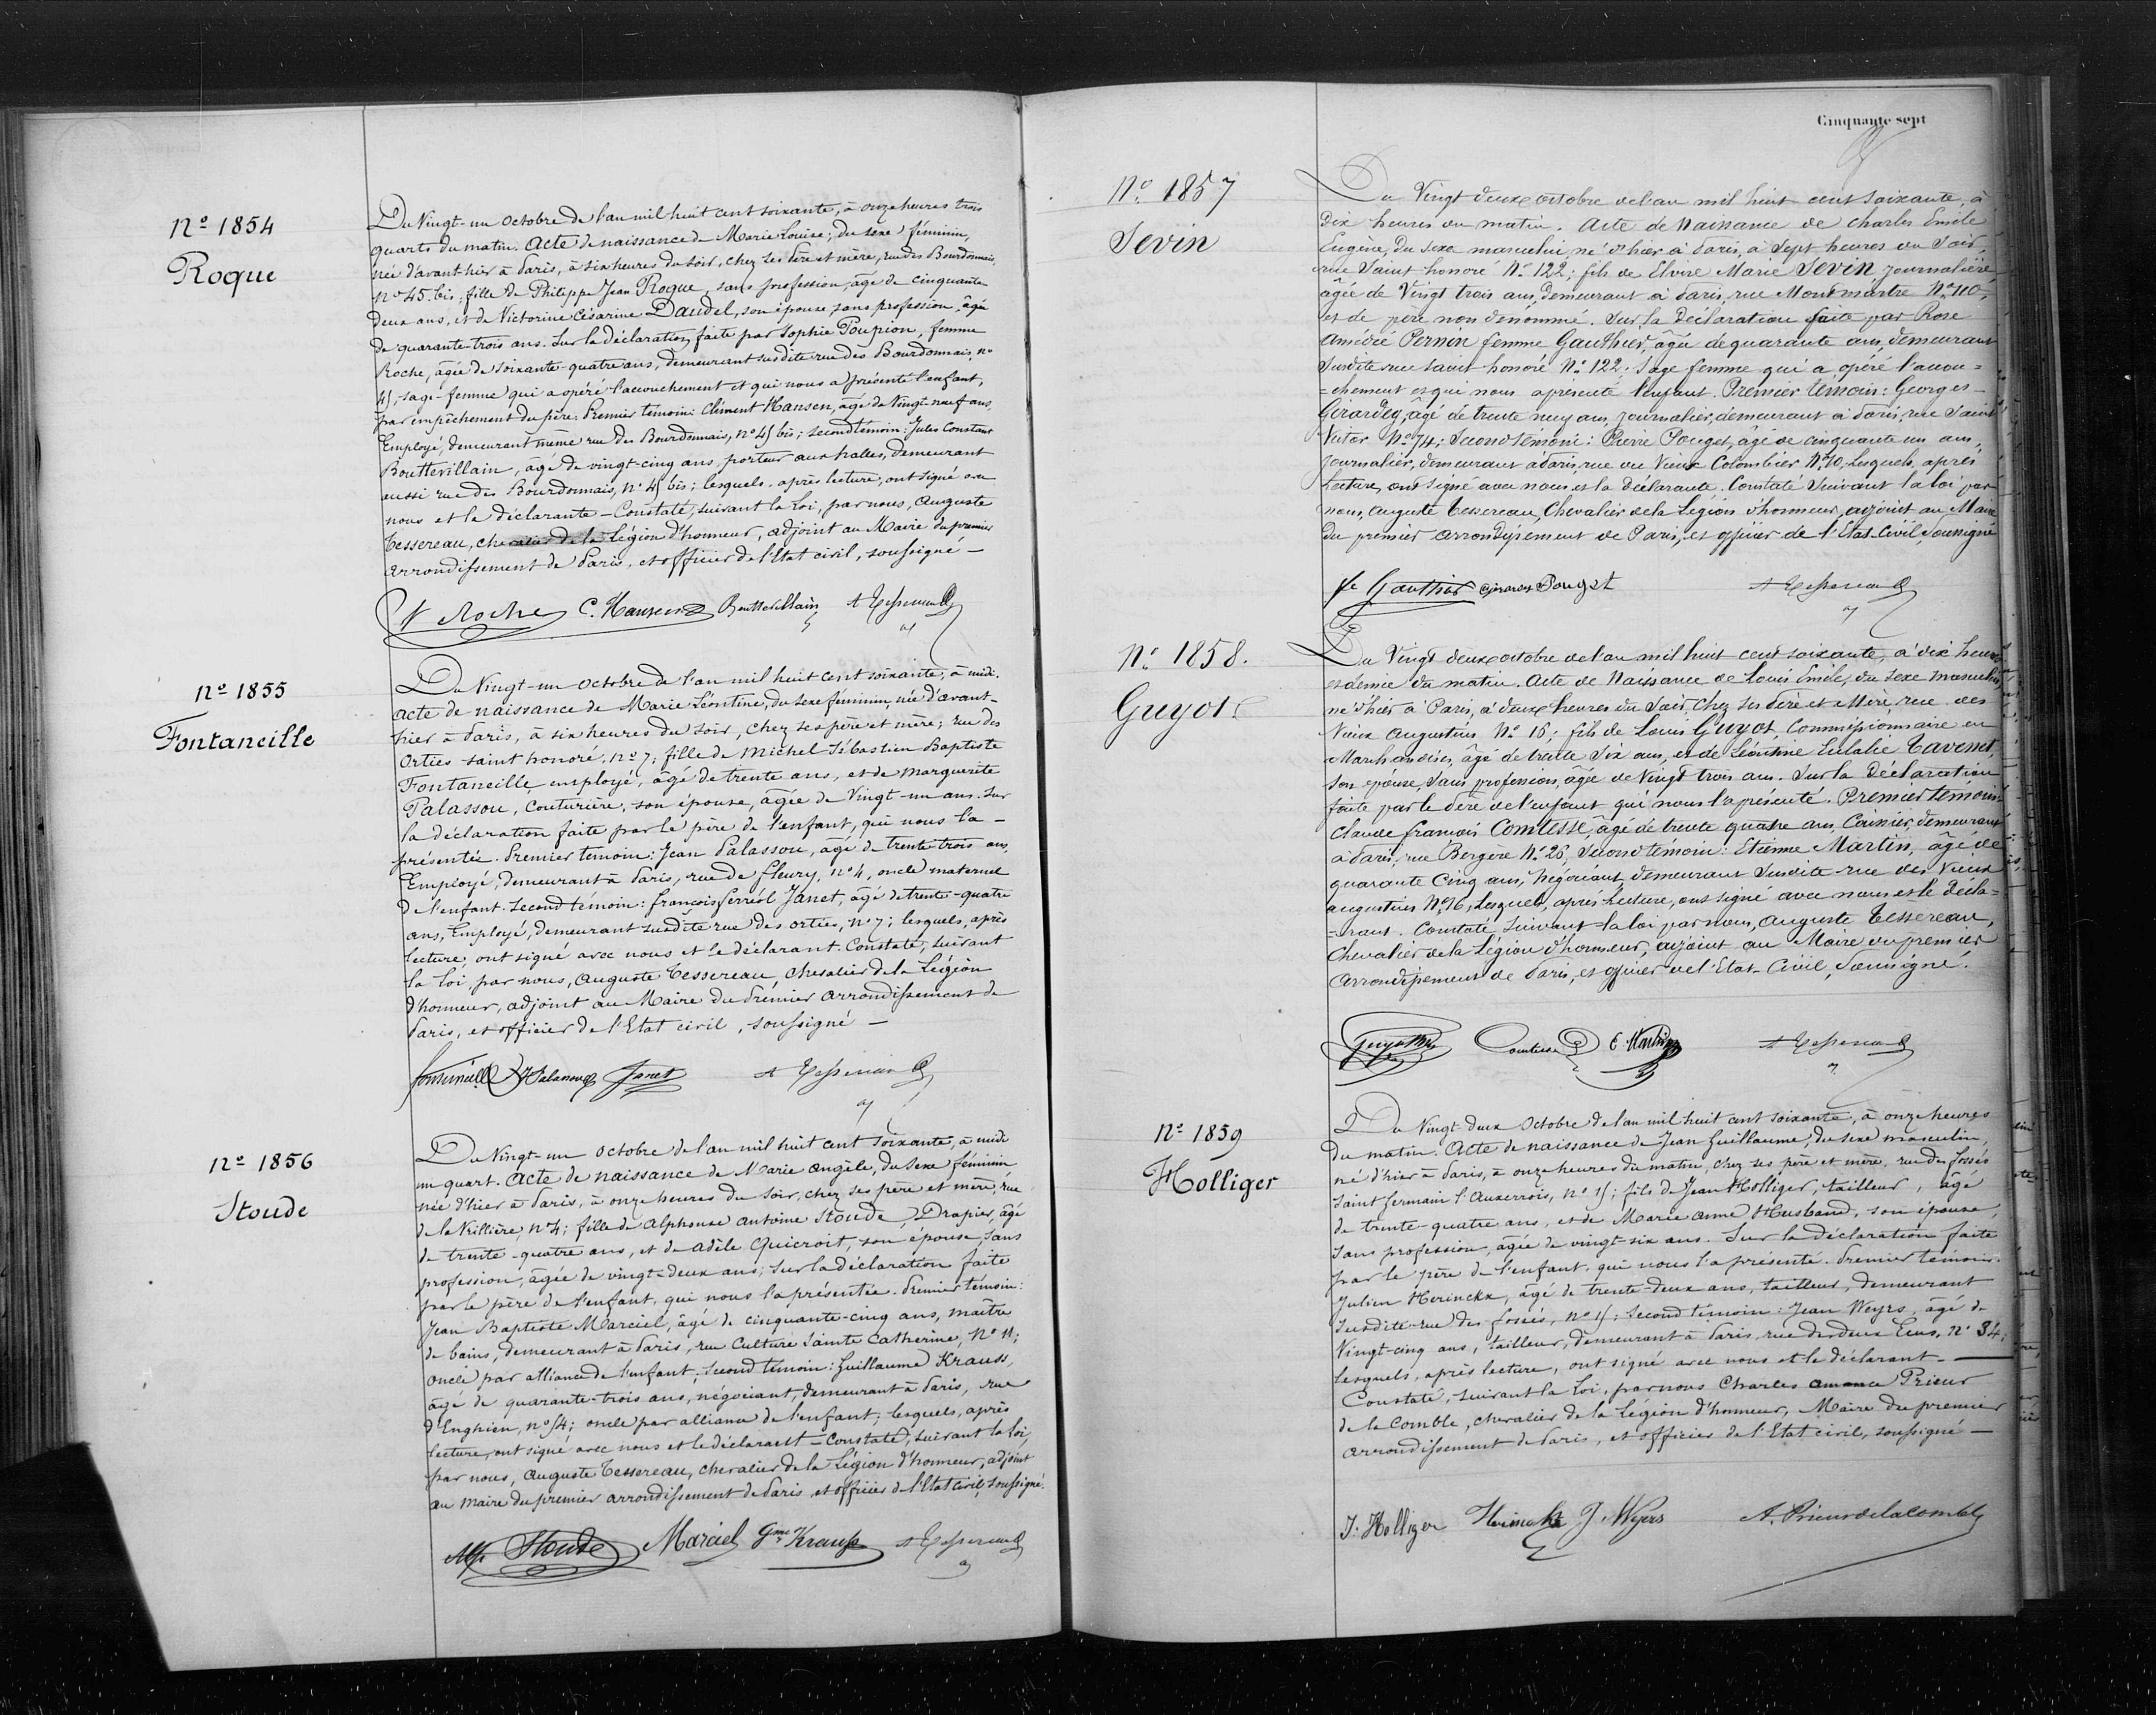 Nº 1854
Roque
Du Vingt-un Octobre de l'an mil huit cent soixante, à onze heures trois
quarts du matin. Acte de naissance de Marie Louise, du sexe féminin,
née d'avant hier à Paris, à six heures du soir, chez ses père et mère, rue des Bourdonnais,
nº 45 bis; fille de Philippe Jean Roque, sans profession, âgé de cinquante
deux ans, et de Victorine Césarine Daudel, son épouse, sans profession, âgée
de quarante-trois ans. Sur la déclaration faite par Sophie Poupion, femme
Roche, âgée de soixante-quatre ans, demeurant susdite rue des Bourdonnais, nº
45, sage-femme qui a opéré l'accouchement et qui nous a présenté l'enfant,
par empêchement du père. Premier témoin: Clément Hansen, âgé de Vingt-neuf ans,
Employé, demeurant même rue des Bourdonnais, nº 45 bis; second témoin: Jules Constant
Bouttevillain, âgé de vingt-cinq ans, porteur aux halles, demeurant
aussi rue des Bourdonnais, nº 45 bis; lesquels, après lecture, ont signé avec
nous et la déclarante - Constaté, suivant la loi, par nous, Auguste
Tessereau, chevalier de la Légion d'honneur, adjoint au Maire du premier
arrondissement de Paris, et officier de l'Etat civil, soussigné -
Roche C. Hansen Bouttevillain A Tessereau
nº 1855
Fontaneille
Du Vingt-un Octobre de l'an mil huit cent soixante, à midi.
Acte de naissance de Marie Léontine, du sexe féminin, née d'avant-
hier à Paris, à six heures du soir, chez ses père et mère, rue des
Orties saint honoré, nº 7; fille de Michel Sébastien Baptiste
Fontaneille, employé, âgé de trente ans, et de Marguerite
Palassou, Couturière, son épouse, âgée de Vingt-un ans. Sur
la déclaration faite par le père de l'enfant, qui nous l'a -
présentée. Premier témoin: Jean Palassou, âgé de trente-trois ans,
Employé, demeurant à Paris, rue de fleury, nº 4, oncle maternel
de l'enfant. Second témoin: françois ferréol Janet, âgé de trente-quatre
ans, Employé, demeurant susdite rue des orties, nº 7; lesquels, après
lecture, ont signé avec nous et le déclarant. Constaté, suivant
la loi, par nous, Auguste Tessereau, chevalier de la Légion
d'honneur, adjoint au Maire du Premier arrondissement de
Paris, et officier de l'Etat civil, soussigné -
fontaneille Palassou Janet A Tessereau
nº 1856
Stoude
Du Vingt-un octobre de l'an mil huit cent soixante, à midi
un quart. Acte de naissance de Marie Angèle, du sexe féminin,
née d'hier à Paris, à onze heures du soir, chez ses père et mère, rue
de la Vrillière, nº 4; fille de Alphonse Antoine Stoude, Drapier, âgé
de trente-quatre ans, et de Adèle Quicroit, son épouse, sans
profession, âgée de vingt-deux ans; sur la déclaration faite
par le père de l'enfant, qui nous l'a présentée. Premier témoin:
Jean Baptiste Marciel, âgé de cinquante-cinq ans, maître
de bains, demeurant à Paris, rue Culture Sainte Catherine, nº 11;
oncle par alliance de l'enfant, second témoin: Guillaume Krauss,
âgé de quarante-trois ans, négociant, demeurant à Paris, rue
d'Enghien, nº 54; oncle par alliance de l'enfant; lesquels, après
lecture, ont signé avec nous et le déclarant - Constaté, suivant la loi,
par nous, Auguste Tessereau, chevalier de la Légion d'honneur, adjoint
au Maire du premier arrondissement de Paris, et officier de l'Etat civil, soussigné.
Alp Stoude Marciel Gme Krauss A Tessereau
Cinquante sept
Nº 1857
Sevin
Du Vingt deux octobre de l'an mil huit cent soixante, à
dix heures du matin. Acte de Naissance de Charles Emile
Eugène, du sexe masculin, né d'hier à Paris, à Sept heures du Soir,
rue Saint honoré Nº 122; fils de Elvire Marie Sevin, journalière
âgée de Vingt trois ans, demeurant à Paris, rue Montmartre Nº 110,
et de père non dénommé. Sur la Déclaration faite par Rose
Amédée Pernin femme Gauthier, âgée de quarante ans, demeurant
Susdite rue Saint honoré Nº 122, Sage femme qui a opéré l'accou=
=chement et qui nous a présenté l'enfant. Premier témoin: Georges
Girardey, âgé de trente neuf ans, journalier, demeurant à Paris, rue Saint
Victor Nº 74; Second témoin: Pierre Pouget, âgé de cinquante un ans,
journalier, demeurant à Paris, rue du Vieux Colombier Nº 10, Lesquels, après
Lecture, ont signé avec nous et la Déclarante. Constaté Suivant la loi par
nous, Auguste Tessereau, Chevalier de la Légion d'honneur, adjoint au Maire
du premier arrondissement de Paris, et officier de l'Etat-Civil, soussigné
fe Gauthier Girardey Pouget A Tessereau
Nº 1858.
Guyot
Du Vingt deux octobre de l'an mil huit cent soixante, à dix heures
et demie du matin. Acte de Naissance de Louis Emile, du sexe masculin,
né d'hier à Paris, à deux heures du Soir, chez ses Père et Mère, rue des
Vieux Augustins Nº 16; fils de Louis Guyot, Commissionnaire en
Marchandises, âgé de trente Six ans, et de Léontine Eulalie Tavenet,
son épouse, Sans profession, âgée de Vingt trois ans. Sur la Déclaration
faite par le Père de l'enfant qui nous l'a présenté. Premier témoin:
Claude françois Comtesse, âgé de trente quatre ans, Caissier, demeurant
à Paris, rue Bergère Nº 26, Second témoin: Etienne Martin, âgé de
quarante Cinq ans, Négociant, demeurant Susdite rue des Vieux
augustins Nº 16, Lesquels, après Lecture, ont signé avec nous et le Décla=
=rant. Constaté Suivant la loi par nous, Auguste Tessereau,
Chevalier de la Légion d'honneur, adjoint au Maire du premier
Arrondissement de Paris, et officier de l'Etat-Civil, Soussigné.
Guyot Comtesse E. Martin A Tessereau
Nº 1859
Holliger
Du Vingt-deux Octobre de l'an mil huit cent soixante, à onze heures
du matin. Acte de naissance de Jean Guillaume, du sexe masculin,
né d'hier à Paris, à onze heures du matin, chez ses père et mère, rue des fossés
Saint Germain l'Auxerrois, nº 15; fils de Jean Holliger, tailleur, âgé
de trente-quatre ans, et de Marie Anne Husband, son épouse,
Sans profession, âgée de vingt-six ans. Sur la déclaration faite
par le père de l'enfant, qui nous l'a présenté. Premier témoin:
Julien Herinckx, âgé de trente-deux ans, tailleur, demeurant
Susdite rue des fossés, nº 15; Second témoin: Jean Weyrs, âgé de
Vingt-cinq ans, tailleur, demeurant à Paris, rue des deux Ecus, nº 34;
lesquels, après lecture, ont signé avec nous et le déclarant. -
Constaté, suivant la loi, par nous Charles Prieur
de la Comble, chevalier de la Légion d'honneur, Maire du premier
arrondissement de Paris, et officier de l'Etat civil, soussigné -
J. Holliger Herinckx J. Weyers A. Prieur de la Comble